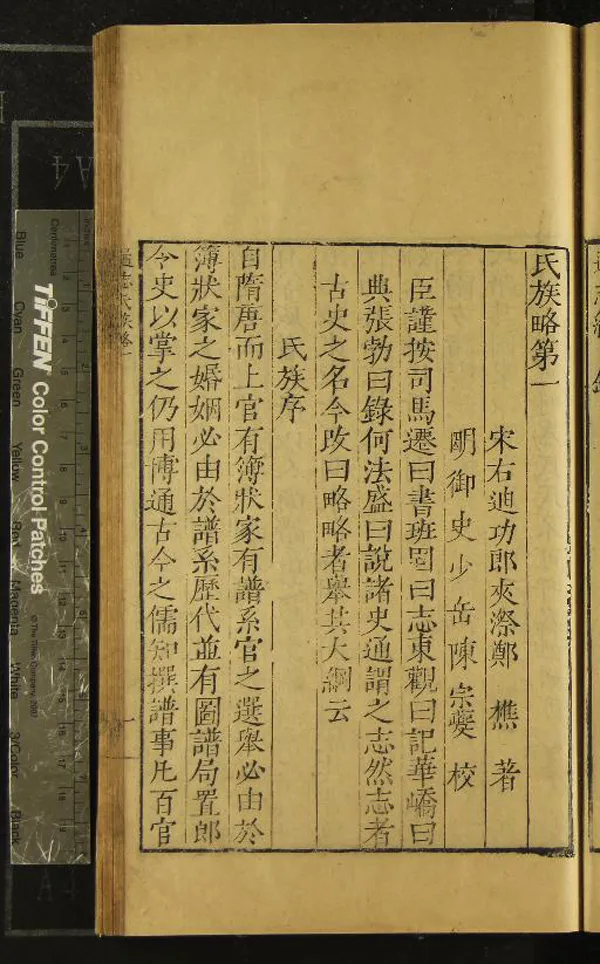 氏族略第一
宋右迪功郎夾漈鄭 樵 著
明御史少岳陳宗夔 校
臣謹按司馬遷曰書班固曰志東觀曰記華嶠曰
典張勃曰錄何法盛曰說諸史通謂之志然志者
古史之名今改曰略略者舉其大綱云
氏族序
自隋唐而上官有簿狀家有譜系官之選舉必由於
簿狀家之婚姻必由於譜系歷代並有圖譜局置郎
令史以掌之仍用博通古今之儒知撰譜事凡百官
通志氏族略一
Inches
Centimetres
TIFFEN Color Control Patches
© The Tiffen Company, 2007
Blue
Cyan
Green
Yellow
Red
Magenta
White
3/Color
Black
A4
A4